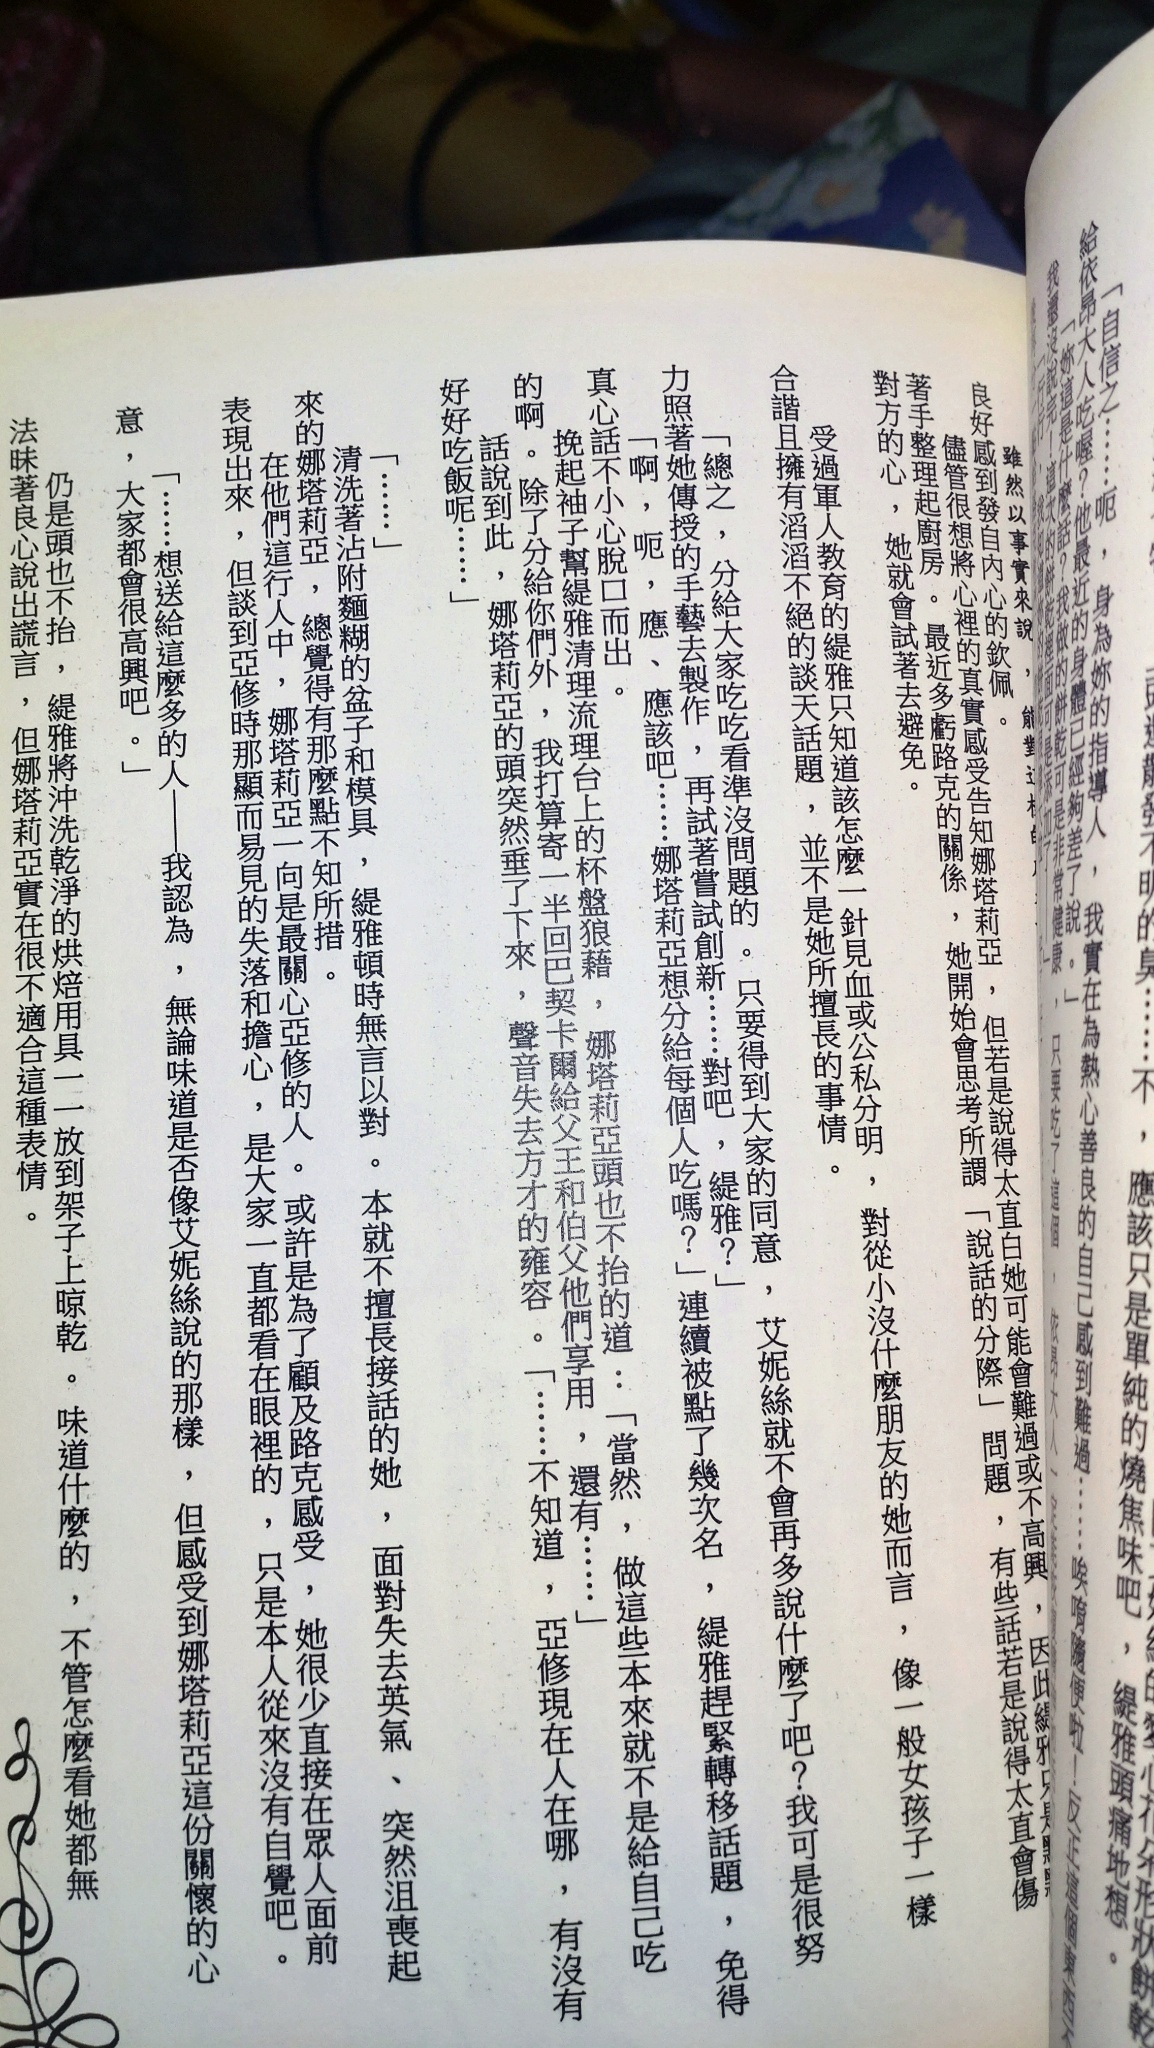 頭還散發不明的臭……不，應該只是單純的燒焦味吧，緹雅頭痛地想。
「自信之……呃，身為妳的指導人，我實在為熱心善良的自己感到難過……唉唷隨便啦！反正這個東西不
給依昂大人吃喔？他最近的身體已經夠差了說。」
「妳這是什麼話？我做的餅乾可是非常健康，只要吃了這個，依昂大人一定
我還沒說完！這次的餅乾裡面可是添加了——」
雖然以事實來說，能對這樣的
良好感到發自內心的欽佩。
儘管很想將心裡的真實感受告知娜塔莉亞，但若是說得太直白她可能會難過或不高興，因此緹雅只是默默
著手整理起廚房。最近多虧路克的關係，她開始會思考所謂「說話的分際」問題，有些話若是說得太直會傷
對方的心，她就會試著去避免。
受過軍人教育的緹雅只知道該怎麼一針見血或公私分明，對從小沒什麼朋友的她而言，像一般女孩子一樣
合諧且擁有滔滔不絕的談天話題，並不是她所擅長的事情。
「總之，分給大家吃吃看準沒問題的。只要得到大家的同意，艾妮絲就不會再多說什麼了吧？我可是很努
力照著她傳授的手藝去製作，再試著嘗試創新……對吧，緹雅？」
「啊，呃，應、應該吧……娜塔莉亞想分給每個人吃嗎？」連續被點了幾次名，緹雅趕緊轉移話題，免得
真心話不小心脫口而出。
挽起袖子幫緹雅清理流理台上的杯盤狼藉，娜塔莉亞頭也不抬的道：「當然，做這些本來就不是給自己吃
的啊。除了分給你們外，我打算寄一半回巴契卡爾給父王和伯父他們享用，還有……」
話說到此，娜塔莉亞的頭突然垂了下來，聲音失去方才的雍容。「……不知道，亞修現在人在哪，有沒有
好好吃飯呢……」
「……」
清洗著沾附麵糊的盆子和模具，緹雅頓時無言以對。本就不擅長接話的她，面對失去英氣、突然沮喪起
來的娜塔莉亞，總覺得有那麼點不知所措。
在他們這行人中，娜塔莉亞一向是最關心亞修的人。或許是為了顧及路克感受，她很少直接在眾人面前
表現出來，但談到亞修時那顯而易見的失落和擔心，是大家一直都看在眼裡的，只是本人從來沒有自覺吧。
「……想送給這麼多的人——我認為，無論味道是否像艾妮絲說的那樣，但感受到娜塔莉亞這份關懷的心
意，大家都會很高興吧。」
仍是頭也不抬，緹雅將沖洗乾淨的烘焙用具一一放到架子上晾乾。味道什麼的，不管怎麼看她都無
法昧著良心說出謊言，但娜塔莉亞實在很不適合這種表情。